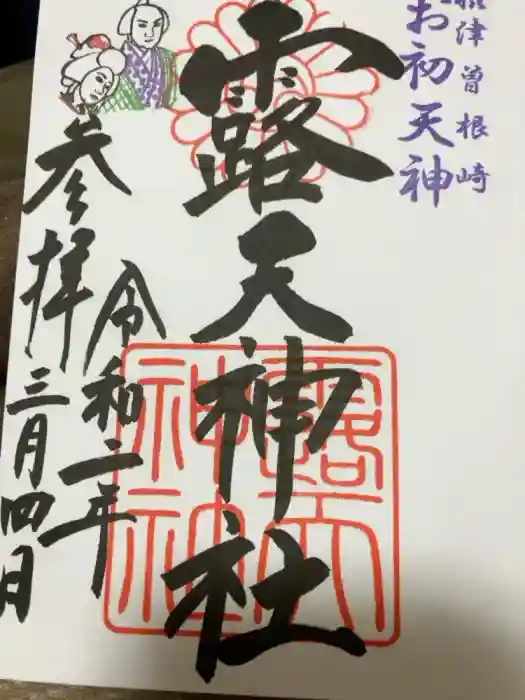 摂津曽根崎
お初天神
露天神社
令和二年
三月四日
参拝
露天
神社